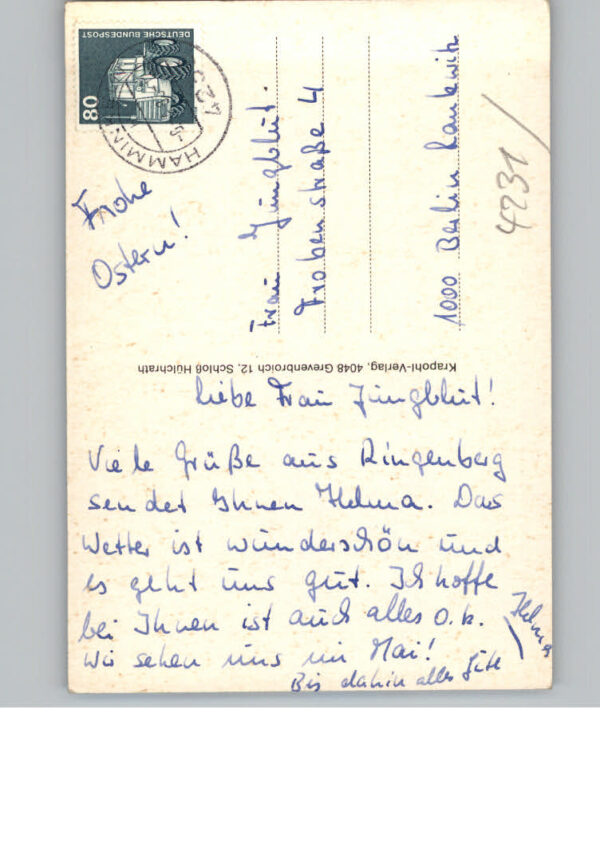 DEUTSCHE BUNDESPOST
80
HAMMIN
423
Frohe
Ostern!
Frau Jungblut.
Frobenstraße 4
1000 Berlin Lankwitz
4231/
Krapohl-Verlag, 4048 Grevenbroich 12, Schloß Hülchrath
Liebe Frau Jungblut!
Viele Grüße aus Ringenberg
sendet Ihnen Helma. Das
Wetter ist wunderschön und
es geht uns gut. Ich hoffe
bei Ihnen ist auch alles o.k.
Wir sehen uns im Mai!
Bis dahin alles Gute
Helma